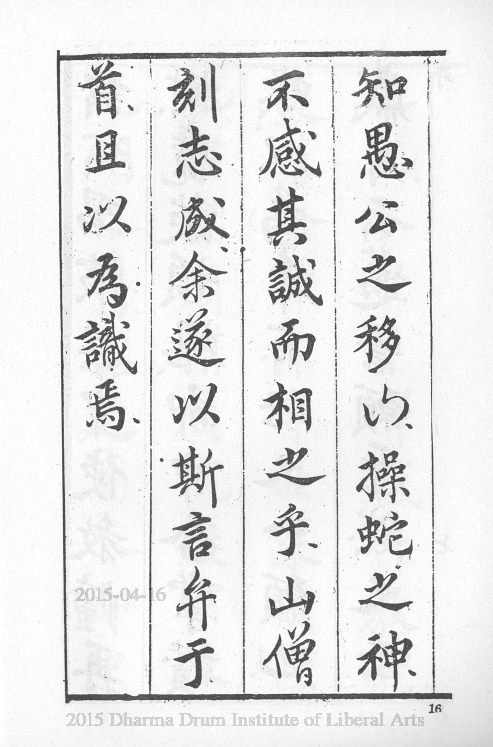 知愚公之移山操蛇之神
不感其誠而相之乎山僧
刻志成余遂以斯言弁于
首且以為識焉
16
2015-04-16
2015 Dharma Drum Institute of Liberal Arts